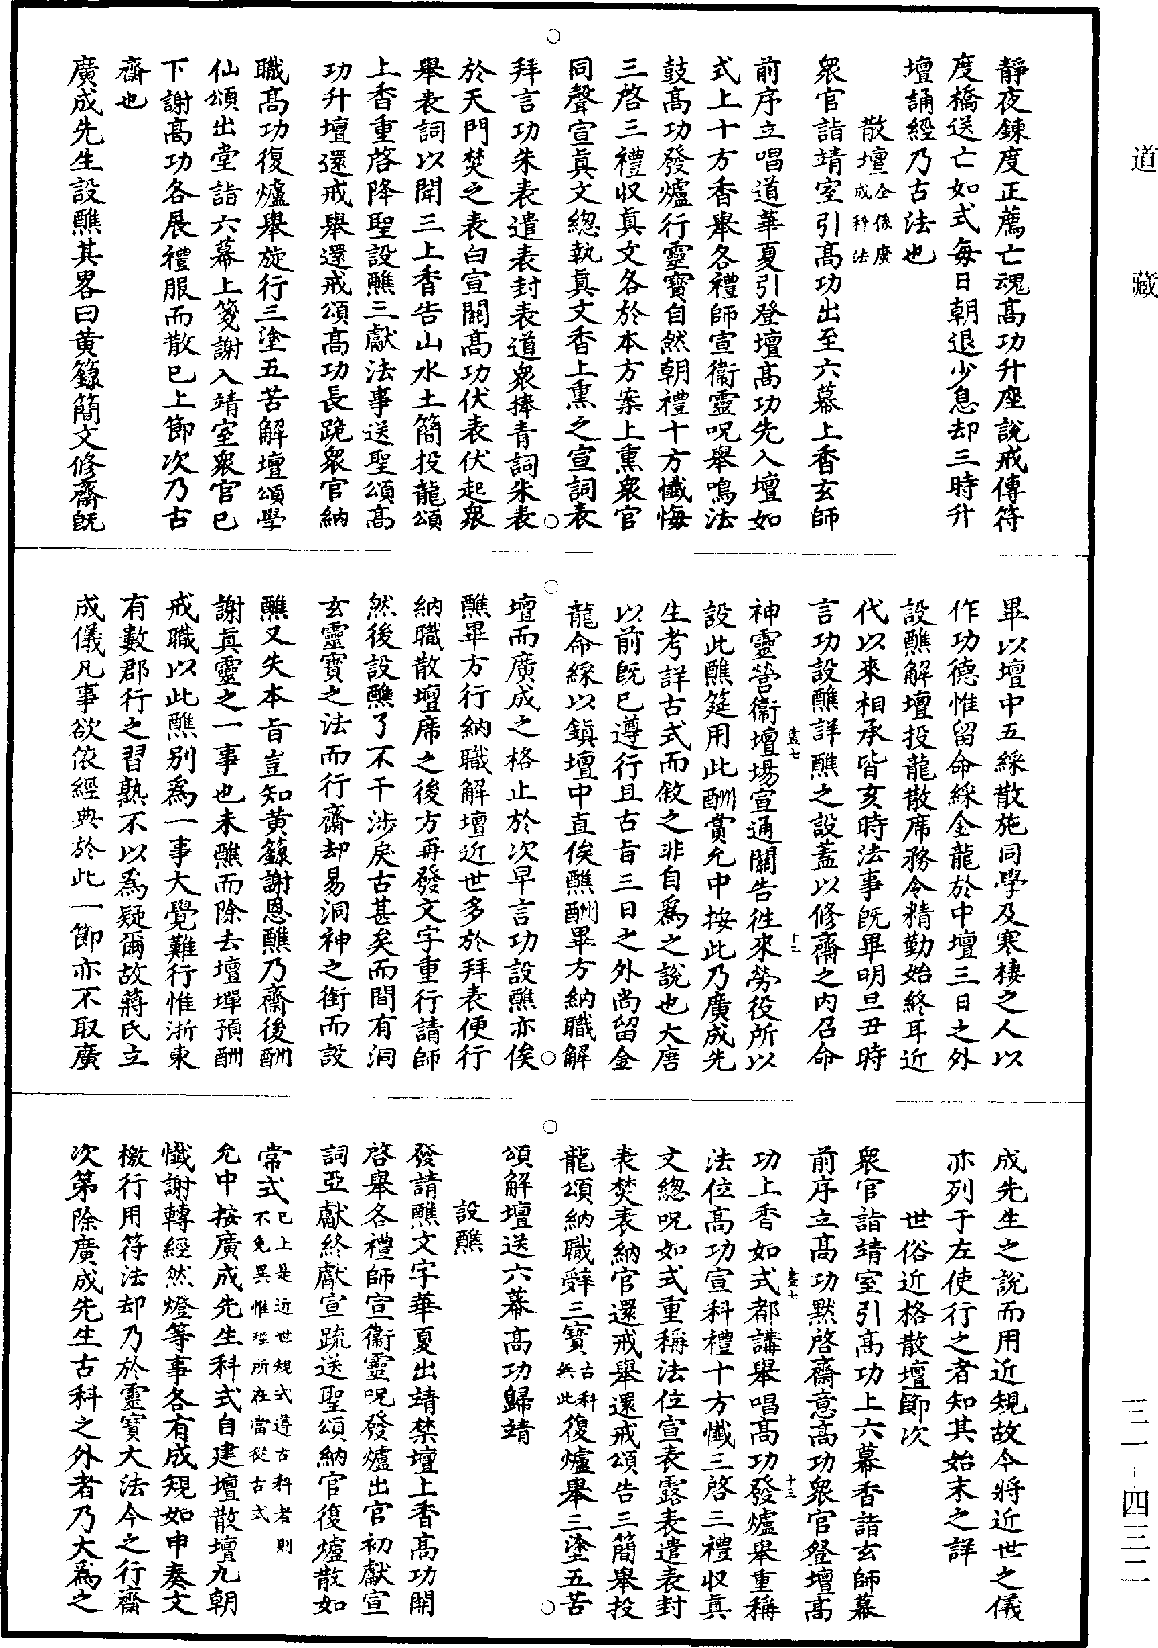 道藏
靜夜鍊度正薦亡魂高功升座說戒傳符
度橋送亡如式每日朝退少息却三時升
壇誦經乃古法也
散壇全係廣成科法
衆官詣靖室引高功出至六幕上香玄師
前序立唱道華夏引登壇高功先入壇如
式上十方香舉各禮師宣衞靈呪舉鳴法
鼓高功發爐行靈寶自然朝禮十方懺悔
三啓三禮収真文各於本方案上熏衆官
同聲宣真文總執真文香上熏之宣詞表
拜言功朱表遣表封表道衆捧青詞朱表
於天門焚之表白宣關高功伏表伏起衆
舉表詞以聞三上香告山水土簡投龍頌
上香重啓降聖設醮三獻法事送聖頌高
功升壇還戒舉還戒頌高功長跪衆官納
職高功復爐舉旋行三塗五苦解壇頌學
仙頌出堂詣六幕上箋謝入靖室衆官已
下謝高功各展禮服而散已上節次乃古
齋也
廣成先生設醮其畧曰黃籙簡文修齋旣
畢以壇中五綵散施同學及寒棲之人以
作功德惟留命綵金龍於中壇三日之外
設醮解壇投龍散席務令精勤始終耳近
代以來相承皆亥時法事旣畢明旦丑時
言功設醮詳醮之設蓋以修齋之内召命
神靈營衞壇場宣通關告徃來勞役所以
設此醮筵用此酬賞允中按此乃廣成先
生考詳古式而敘之非自爲之說也大唐
以前旣已遵行且古旨三日之外尚留金
龍命綵以鎮壇中直俟醮酬畢方納職解
壇而廣成之格止於次早言功設醮亦俟
醮畢方行納職解壇近世多於拜表便行
納職散壇席之後方再發文字重行請師
然後設醮了不干涉戾古甚矣而間有洞
玄靈寶之法而行齋却易洞神之銜而設
醮又失本旨豈知黃籙謝恩醮乃齋後酬
謝真靈之一事也未醮而除去壇墠預酬
戒職以此醮別爲一事大覺難行惟浙東
有數郡行之習熟不以爲疑爾故蔣氏立
成儀凡事欲依經典於此一節亦不取廣
成先生之說而用近規故今將近世之儀
亦列于左使行之者知其始末之詳
世俗近格散壇節次
衆官詣靖室引高功上六幕香詣玄師幕
前序立高功黙啓齋意高功衆官登壇高
功上香如式都講舉唱高功發爐舉重稱
法位高功宣科禮十方懺三啓三禮収真
文總呪如式重稱法位宣表露表遣表封
表焚表納官還戒舉還戒頌告三簡舉投
龍頌納職辭三寶古科無此復爐舉三塗五苦
頌解壇送六幕高功歸靖
設醮
發請醮文字華夏出靖禁壇上香高功關
啓舉各禮師宣衞靈呪發爐出官初獻宣
詞亞獻終獻宣疏送聖頌納官復爐散如
常式已上是近世規式遵古科者則不免異惟在所在當從古式
允中按廣成先生科式自建壇散壇九朝
懺謝轉經然燈等事各有成規如申奏文
檄行用符法却乃於靈寶大法今之行齋
次第除廣成先生古科之外者乃大爲之
壹七
十二
壹七
十三
三一-四三二